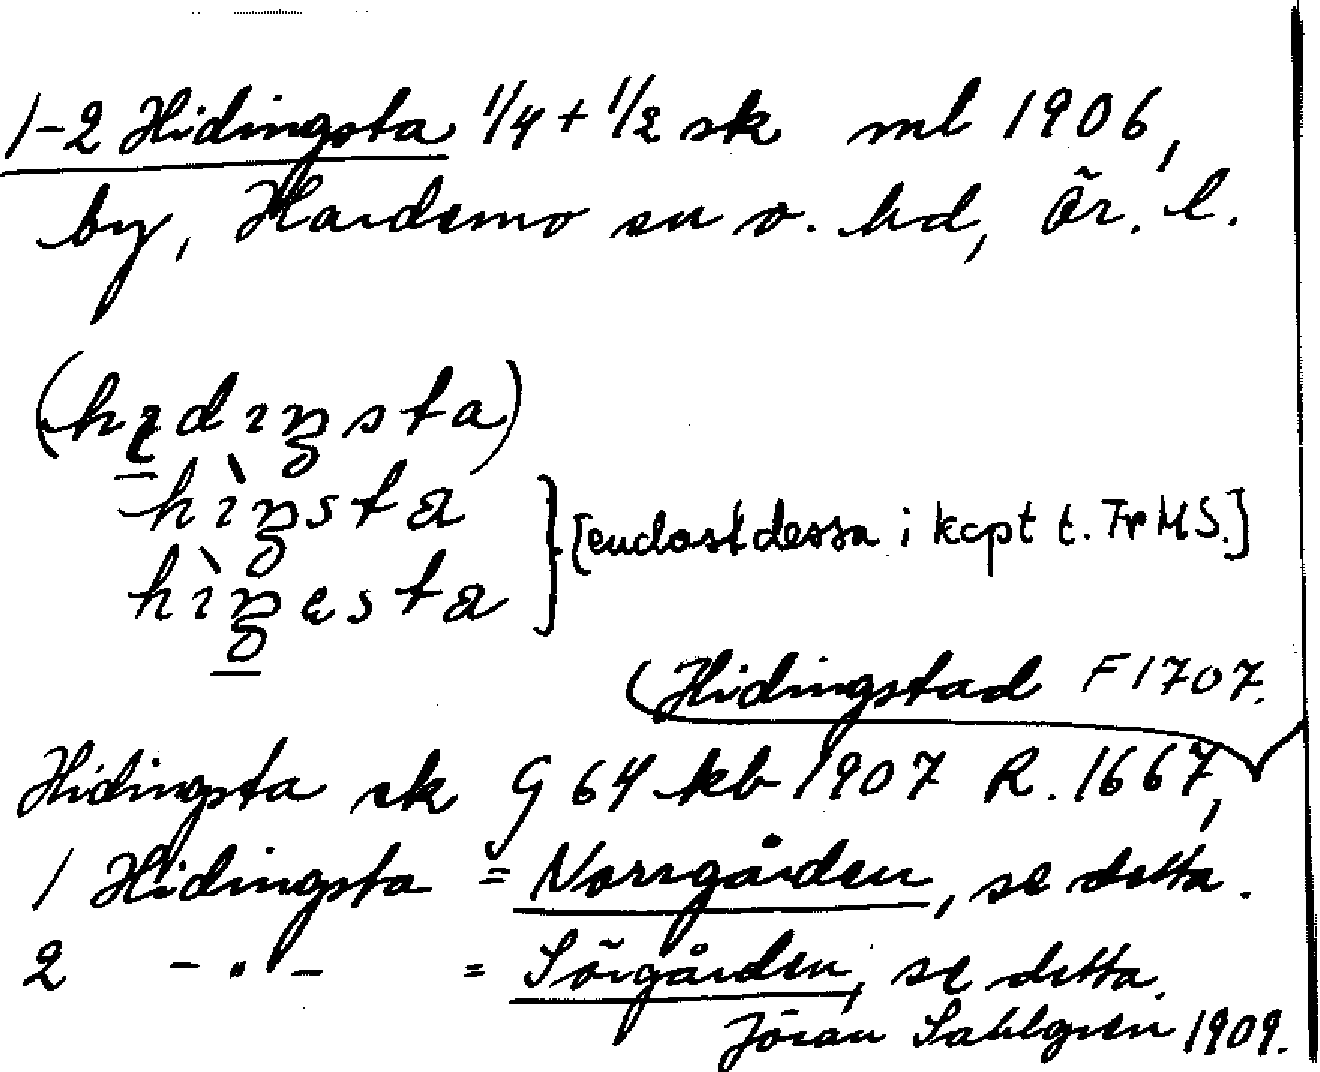 1-2 Hidingsta 1/4 + 1/2 sk ml 1906,
by, Hardemo sn o. hd, Ör. l.
(hidiŋsta)
hìŋsta
hìŋesta
[endast dessa i kcpt t. FrHS.]
(Hidingstad F 1707.
Hidingsta sk G 64 kb 1907 R. 1667,
1 Hidingsta = Norrgården, se detta.
2 - " - = Sörgården, se detta.
Jöran Sahlgren 1909.